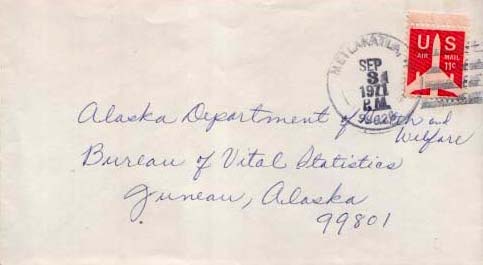 METLAKATLA,
SEP
1971
P.M.
US
AIR MAIL
11¢
Alaska Department of and
Welfare
Bureau of Vital Statistics
Juneau, Alaska
99801